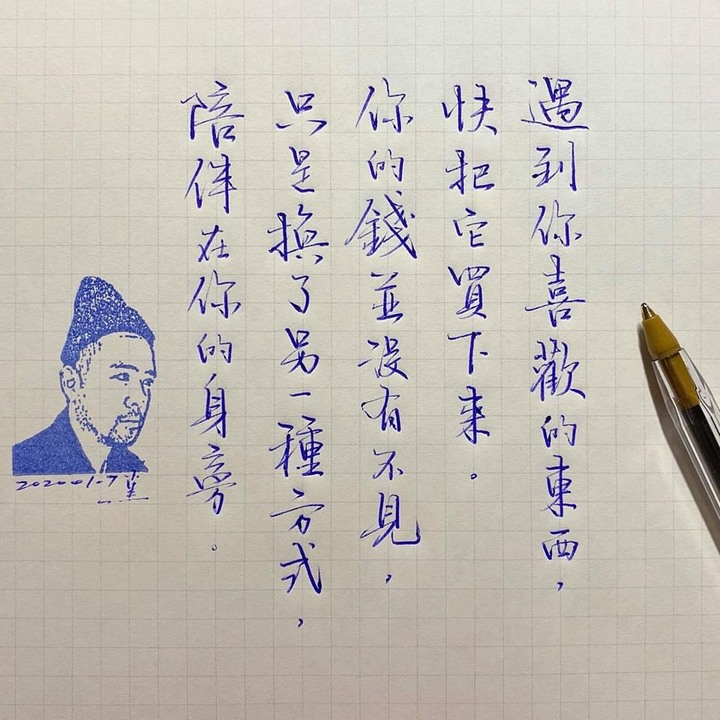 遇到你喜歡的東西，
快把它買下來。
你的錢並沒有不見，
只是換了另一種方式，
陪伴在你的身旁。
2020 01.7